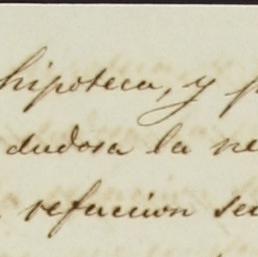 hipoteca, y
dudosa la ne
refaccion